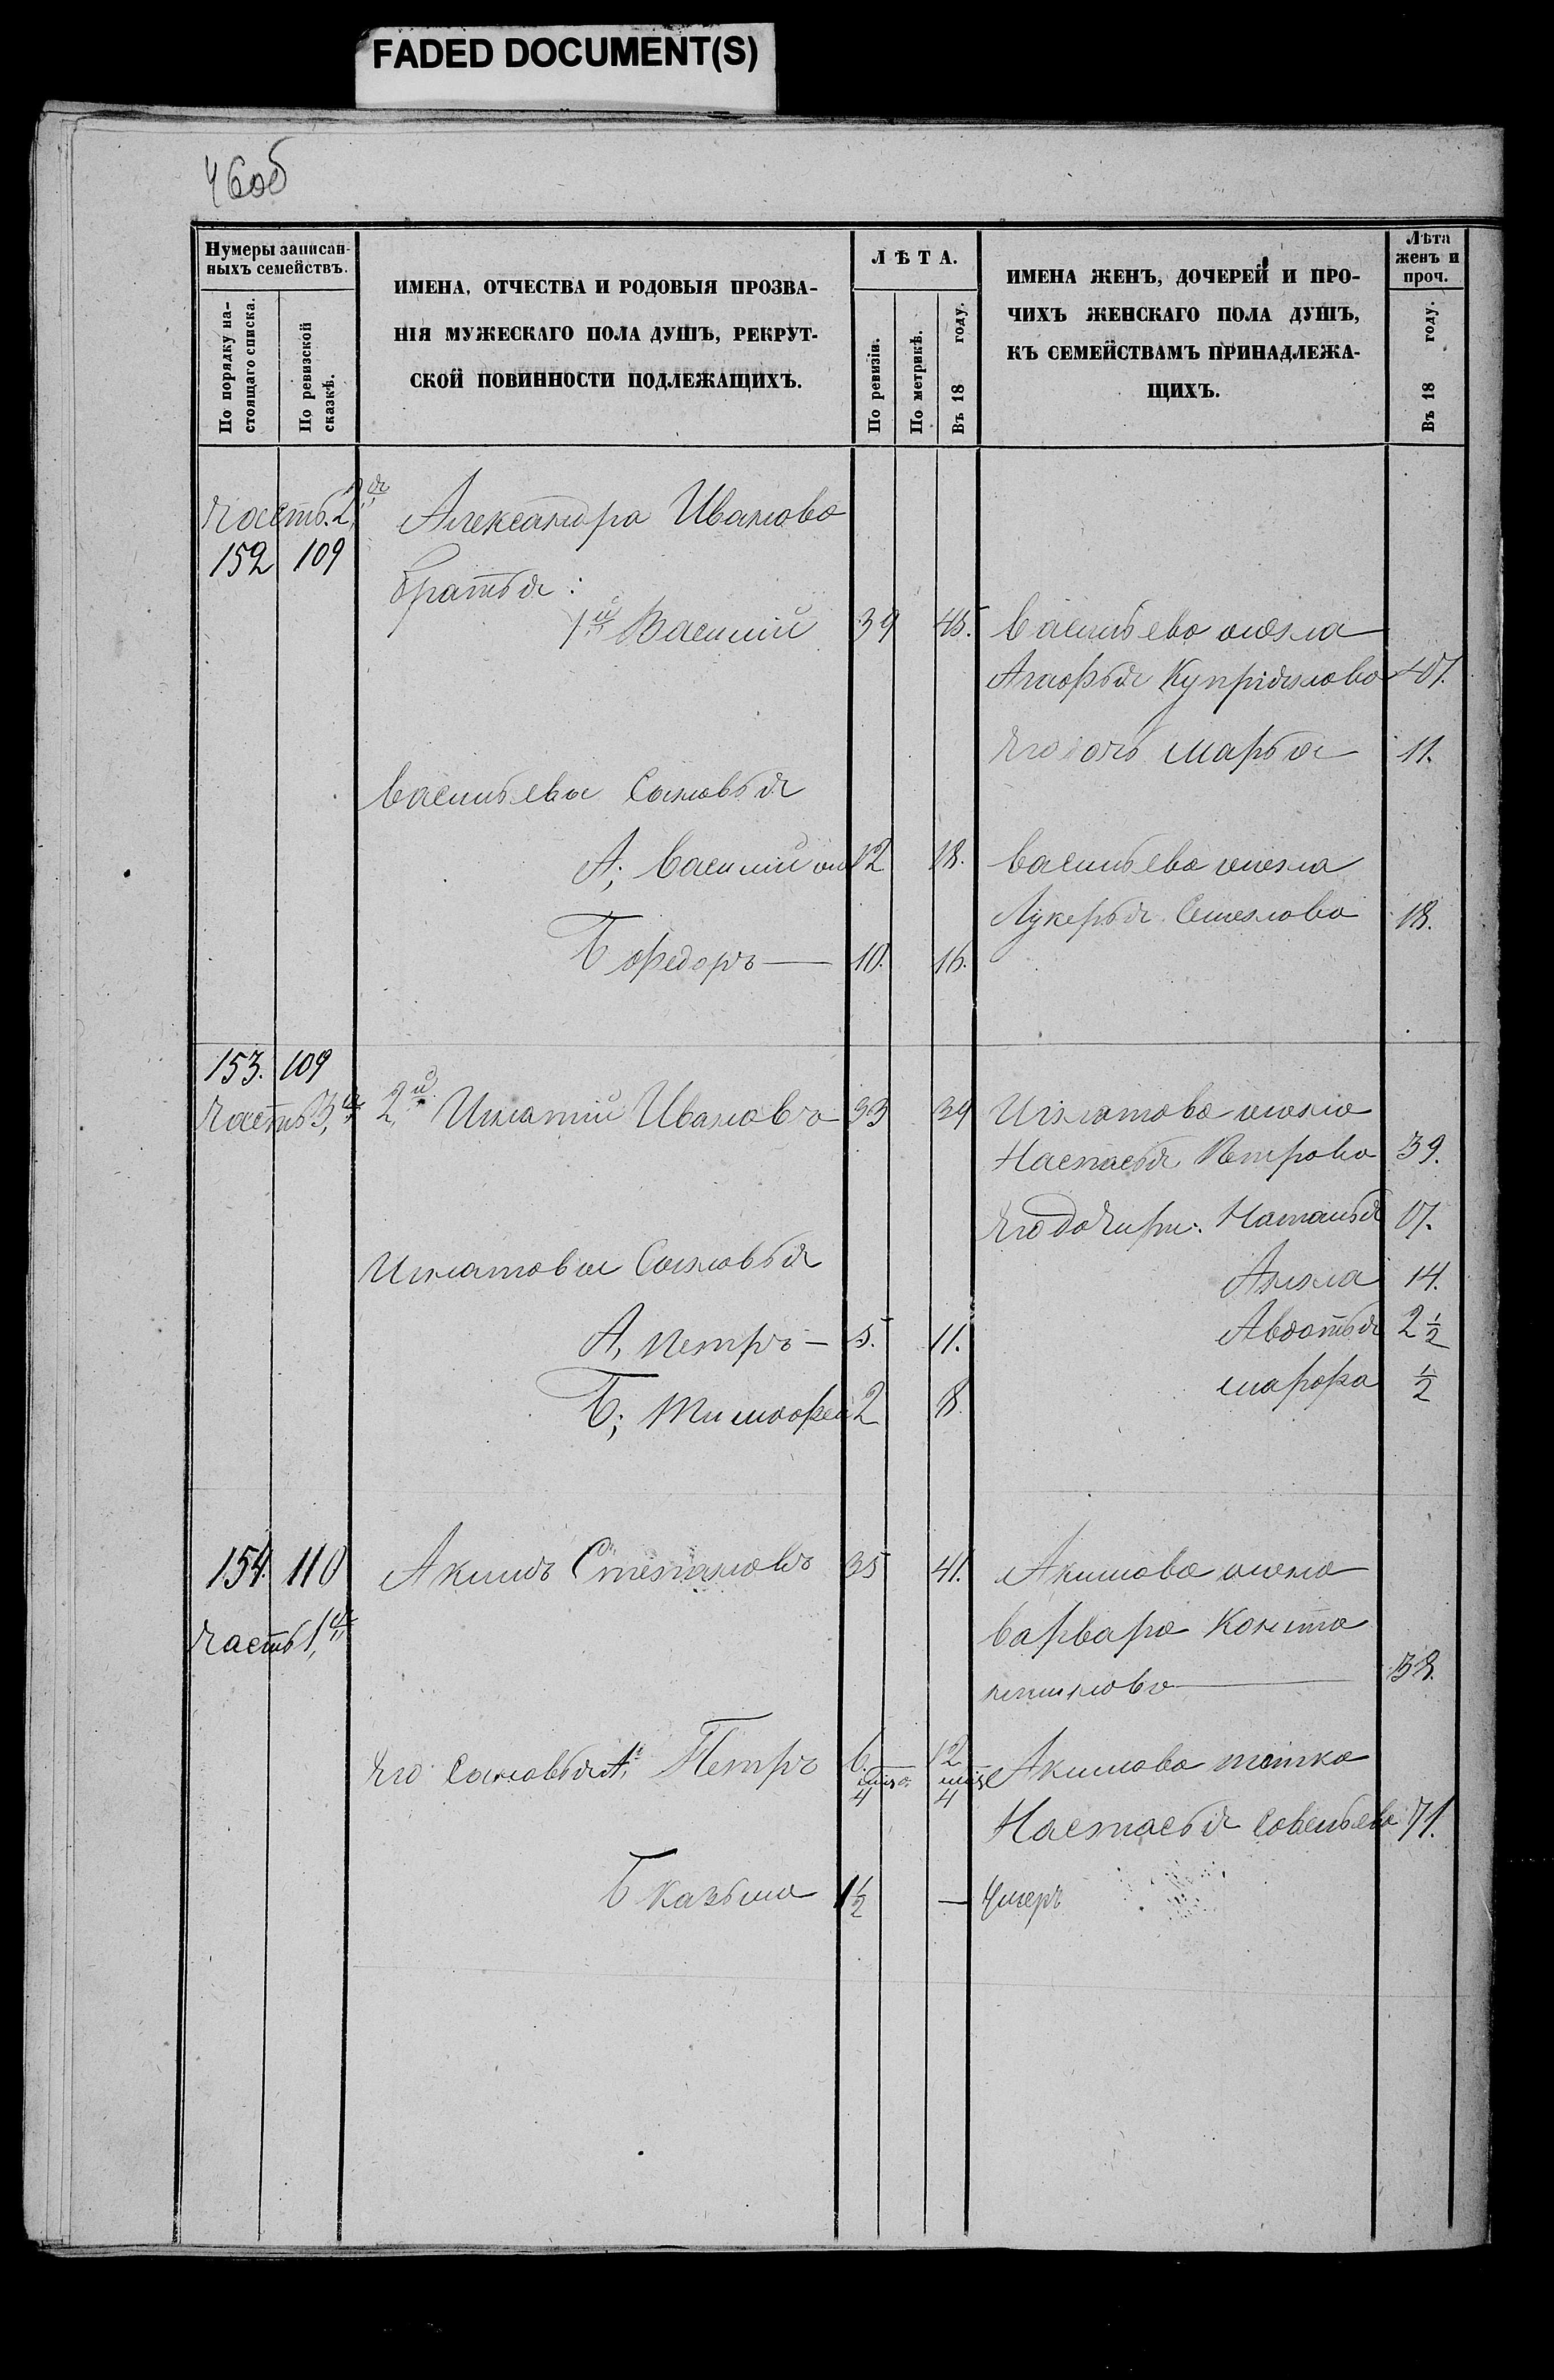 FADED DOCUMENT(S)
46об
Нумеры записан-
ныхъ семействъ.
По порядку на-
стоящаго списка.
По ревизской
сказкѣ.
ИМЕНА, ОТЧЕСТВА И РОДОВЫЯ ПРОЗВА-
НІЯ МУЖЕСКАГО ПОЛА ДУШЪ, РЕКРУТ-
СКОЙ ПОВИННОСТИ ПОДЛЕЖАЩИХЪ.
ЛѢТА.
По ревизіи.
По метрикѣ.
Въ 18 году.
ИМЕНА ЖЕНЪ, ДОЧЕРЕЙ И ПРО-
ЧИХЪ ЖЕНСКАГО ПОЛА ДУШЪ,
КЪ СЕМЕЙСТВАМЪ ПРИНАДЛЕЖА-
ЩИХЪ.
Лѣта
женъ и
проч.
Въ 18 году.
Часть 2,я Александра Иванова
152 109
братья:
1й Василий 39 45. Васильева жена
Агафья Купріянова 47.
Его дочь Марья 11.
Васильевы Сыновья
А; Василий 12 18. Васильева жена
Лукерья Семенова 18.
Б Федоръ — 10. 16.
153. 109
Часть 3,я 2й Игнатий Ивановъ 33 39 Игнатова жена
Настасья Петрова 39.
Его дочери: Наталья 17.
Игнатовы Сыновья
Анна 14.
А, Петръ — 5. 11. Авдотья 2 1/2
Б; Тимофей 2 8 Марфа 1/2
154. 110 Акимъ Степановъ 35 41. Акимова жена
Часть 1,я Варвара Конста
нтинова — 38.
Его Сыновья А, Петръ 6. 12 Акимова тетка
4 4
Настасья Савельева 71.
Б Казьма 1 1/2 — Умеръ